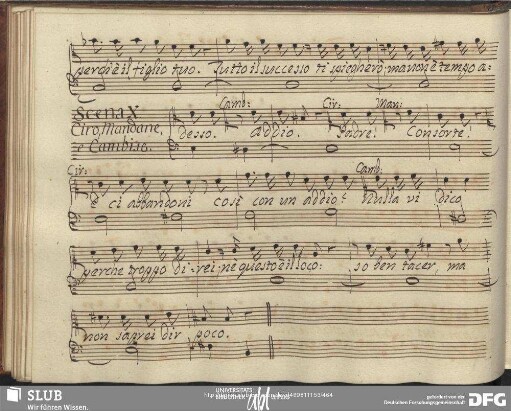 perch'è il figlio tuo. Tutto il successo ti spiegherò: ma non è tempo a:
Camb: Cir: Man:
Scena X
Ciro, Mandane,
e Cambiso.
desso. addio. Padre! Consorte!
Cir: Camb:
e ci abbandoni così con un addio? Nulla vi dico
perche troppo direi: ne questo è il loco: so ben tacer, ma
non saprei dir poco.
SLUB
Wir führen Wissen.
UNIVERSITÄTS
DFG